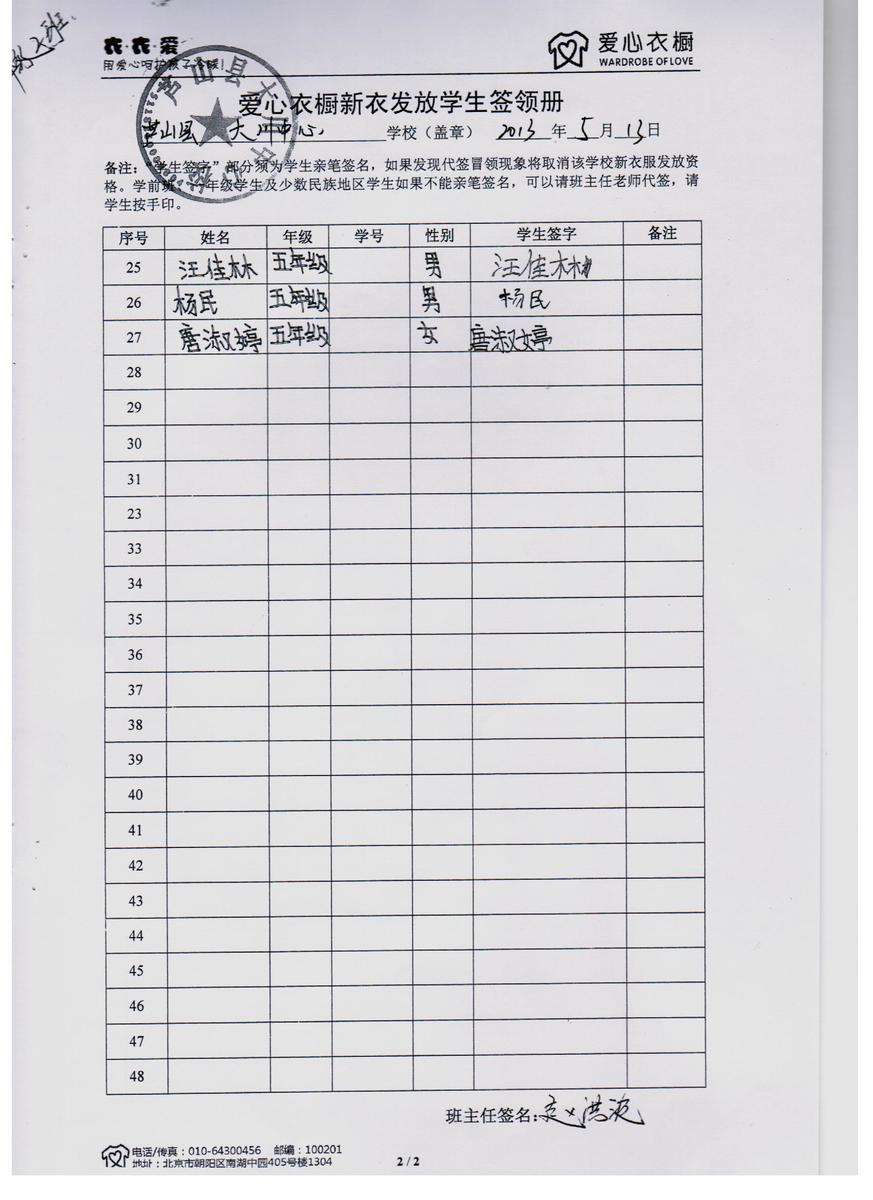 衣·衣·爱
用爱心呵护孩子冷暖！
爱心衣橱
WARDROBE OF LOVE
芦山县大川中心校
爱心衣橱新衣发放学生签领册
芦山县 大川中心 学校（盖章） 2013 年 5 月 13 日
备注：“学生签字”部分须为学生亲笔签名，如果发现代签冒领现象将取消该学校新衣服发放资
格。学前班、一年级学生及少数民族地区学生如果不能亲笔签名，可以请班主任老师代签，请
学生按手印。
序号 姓名 年级 学号 性别 学生签字 备注
25 汪佳林 五年级 男 汪佳林
26 杨民 五年级 男 杨民
27 唐淑婷 五年级 女 唐淑婷
28
29
30
31
23
33
34
35
36
37
38
39
40
41
42
43
44
45
46
47
48
班主任签名：
电话/传真：010-64300456 邮编：100201
地址：北京市朝阳区南湖中园405号楼1304
2 / 2